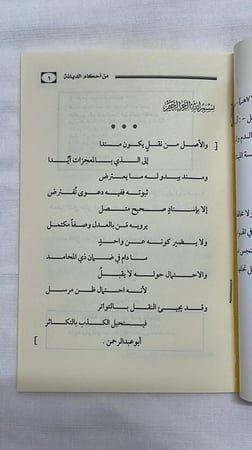 من أحكام الديانة
٦
بسم الله الرحمن الرحيم
* * *
[ والأصل من نقل يكون مسندا
إلى الذي بالمعجزات أيّدا
ومسند يبدو له ما يعترض
ثبوته ففيه دعوى تُفترض
إلا بإسناد صحيح متصل
يرويه مَن بالعدل وصفاً مكتمل
ولا يضير كونه عن واحدٍ
ما دام في ضمان ذي المحامد
والاحتمال حوله لا يقبلُ
لأنه احتمال ظن مرسل
وقد يجيئ النقل بالتواتر
فيستحيل الكذب بالتكاثر
أبو عبد الرحمن . ]